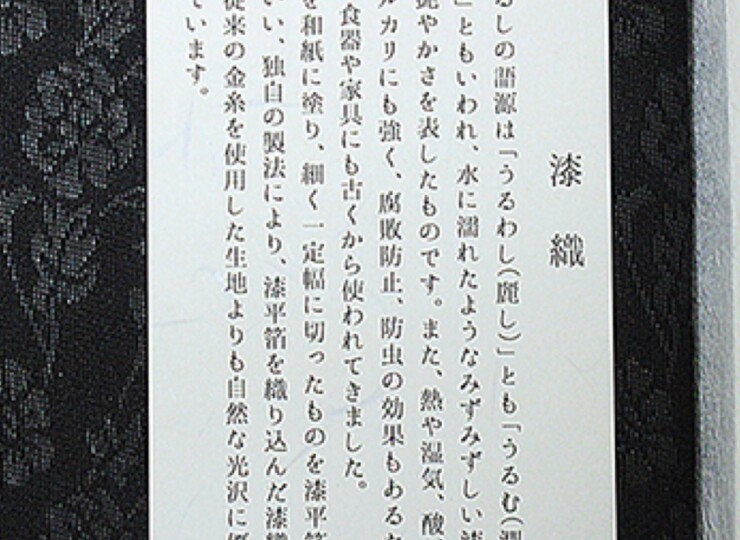 漆織
るしの語源は「うるわし(麗し)」とも「うるむ(潤
」ともいわれ、水に濡れたようなみずみずしい漆
艶やかさを表したものです。また、熱や湿気、酸、
ルカリにも強く、腐敗防止、防虫の効果もあるた
食器や家具にも古くから使われてきました。
を和紙に塗り、細く一定幅に切ったものを漆平箔
い、独自の製法により、漆平箔を織り込んだ漆織
従来の金糸を使用した生地よりも自然な光沢に優
ています。